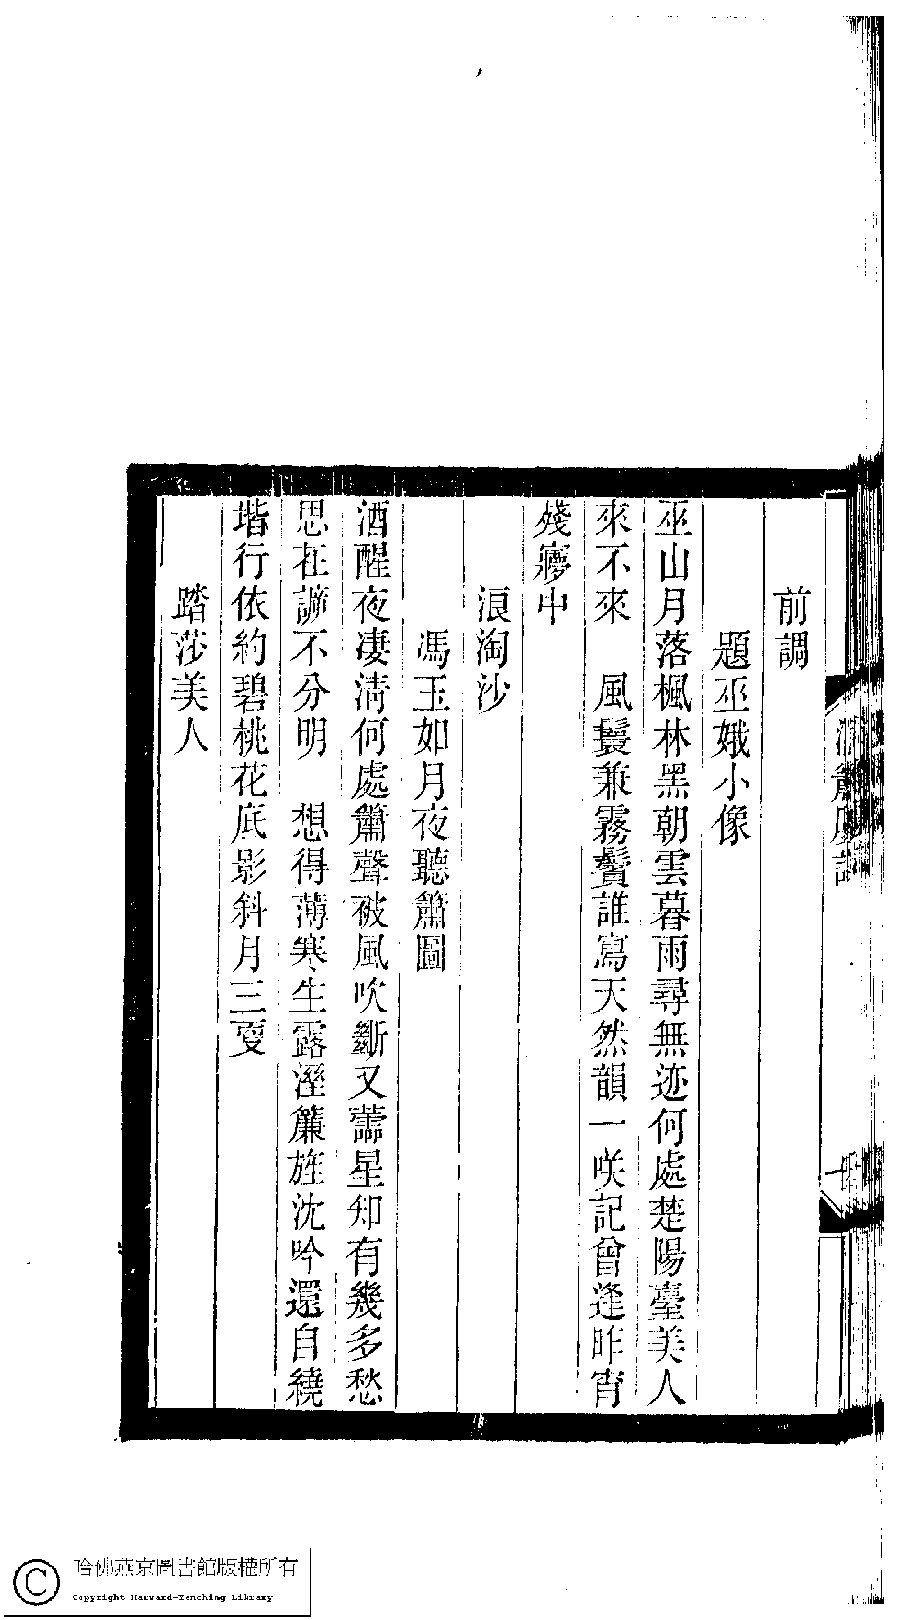 前調
題巫娥小像
巫山月落楓林黑朝雲暮雨尋無迹何處楚陽臺美人
來不來　風鬟兼霧鬢誰寫天然韻一咲記曾逢昨宵
殘㝱中
浪淘沙
馮玉如月夜聽簫圖
酒醒夜凄清何處簫聲被風吹斷又蘦星知有幾多愁
思在諦不分明　想得薄寒生露溼簾旌沈吟還自繞
堦行依約碧桃花底影斜月三更
踏莎美人
哈佛燕京圖書館版權所有
Copyright Harvard-Yenching Library